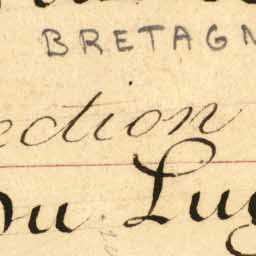 BRETAGN
ection
ou Lug